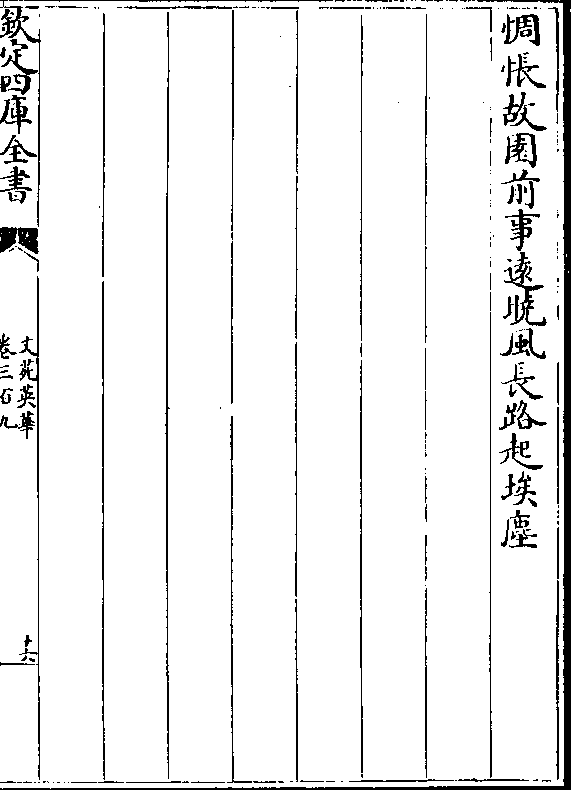 惆悵故園前事遠曉風長路起埃塵
欽定四庫全書
文苑英華
卷三百九
十六